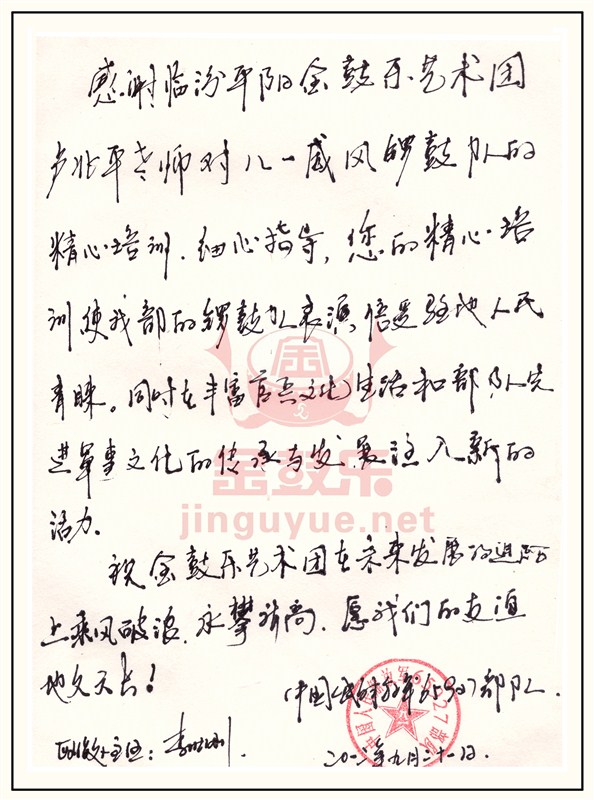 感谢临汾平阳金鼓乐艺术团
卢兆平老师对八一威风锣鼓队的
精心培训、细心指导,您的精心培
训使我部的锣鼓队表演倍受驻地人民
青睐。同时在丰富官兵文化生活和部队先
进军事文化的传承与发展注入新的
金鼓乐
jinguyue.net
活力。
祝金鼓乐艺术团在未来发展的道路
上乘风破浪、永攀新高、愿我们的友谊
地久天长!
中国人民解放军 部队.
主任:李
年九月二十一日.